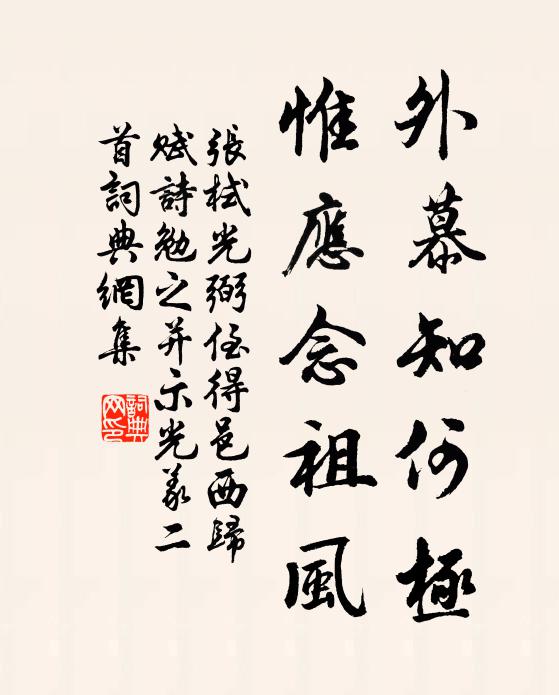 外慕知何極
惟應念祖風
張栻光弼侄得邑西歸
賦詩勉之并示光義二
首詞典網集
詞典網印